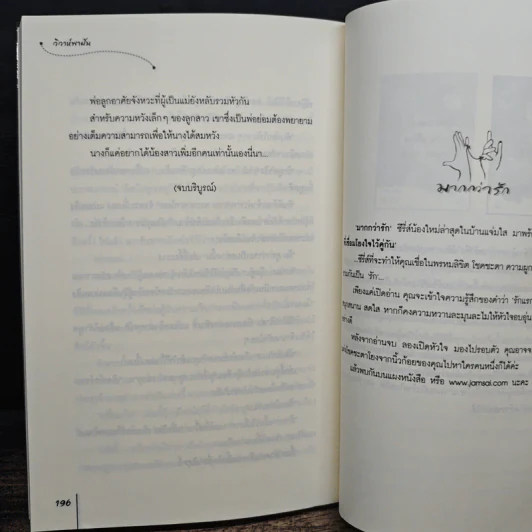 วิวาห์พาฝัน
พ่อลูกอาศัยจังหวะที่ผู้เป็นแม่ยังหลับรวมหัวกัน
สำหรับความหวังเล็กๆ ของลูกสาว เขาซึ่งเป็นพ่อย่อมต้องพยายาม
อย่างเต็มความสามารถเพื่อให้นางได้สมหวัง
นางก็แค่อยากได้น้องสาวเพิ่มอีกคนเท่านั้นเองนี่นา...
(จบบริบูรณ์)
196
มากกว่ารัก
'มากกว่ารัก' ซีรี่ส์น้องใหม่ล่าสุดในบ้านแจ่มใส
...ซีรี่ส์ที่จะทำให้คุณเชื่อในพรหมลิขิต โชคชะตา
เป็น 'รัก'...
เพียงแค่เปิดอ่าน คุณจะเข้าใจความรู้สึกของคำว่า
สดใส หากก็คงความหวานละมุนละไมให้หัวใจ
หลังจากอ่านจบ ลองเปิดหัวใจ มองไปรอบตัว
โชคชะตาโยงจากนิ้วก้อยของคุณไปหาใครคนหนึ่งก็ได้ค่ะ
แล้วพบกันบนแผงหนังสือ หรือ www.jamsai.com นะคะ